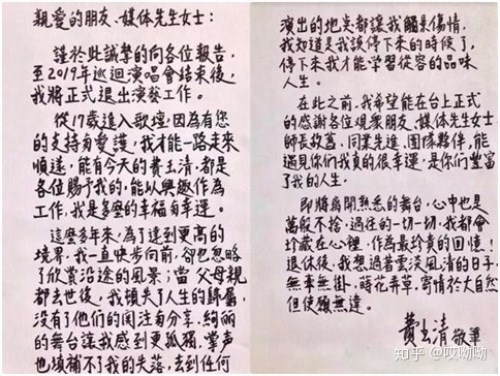 親愛的朋友、媒体先生女士：
謹於此誠摯的向各位報告，
至2019年巡迴演唱會結束後，
我將正式退出演藝工作。
從17歲進入歌壇，因為有您
的支持與愛護，我才能一路走來
順遂，能有今天的費玉清，都是
各位賜予我的，能以興趣作為
工作，我是多麼的幸福與幸運。
這麼多年來，為了達到更高的
境界，我一直快步向前，卻也忽略
了欣賞沿途的風景；當父母親
都去世後，我頓失了人生的歸屬，
沒有了他們的関注與分享，絢麗
的舞台讓我感到更孤獨，掌声
也填補不了我的失落，去到任何
演出的地点都讓我觸景傷情，
我知道是我該停下來的時候了，
停下來我才能学習從容的品味
人生。
在此之前，我希望能在台上正式
的感謝各位观衆朋友、媒体先生女士
師長故舊、同業先進、团隊夥伴，能
遇見你们我真的很幸運，是你們豐富
了我的人生。
即將離開熟悉的舞台，心中也是
萬般不捨，過往的一切一切，我都會
珍藏在心裡，作為最珍貴的回憶！
退休後，我想過著雲淡風清的日子，
無牽無掛、蒔花弄草，寄情於大自然
但使願無違。
費玉清 敬筆
知乎 @哎呦呦